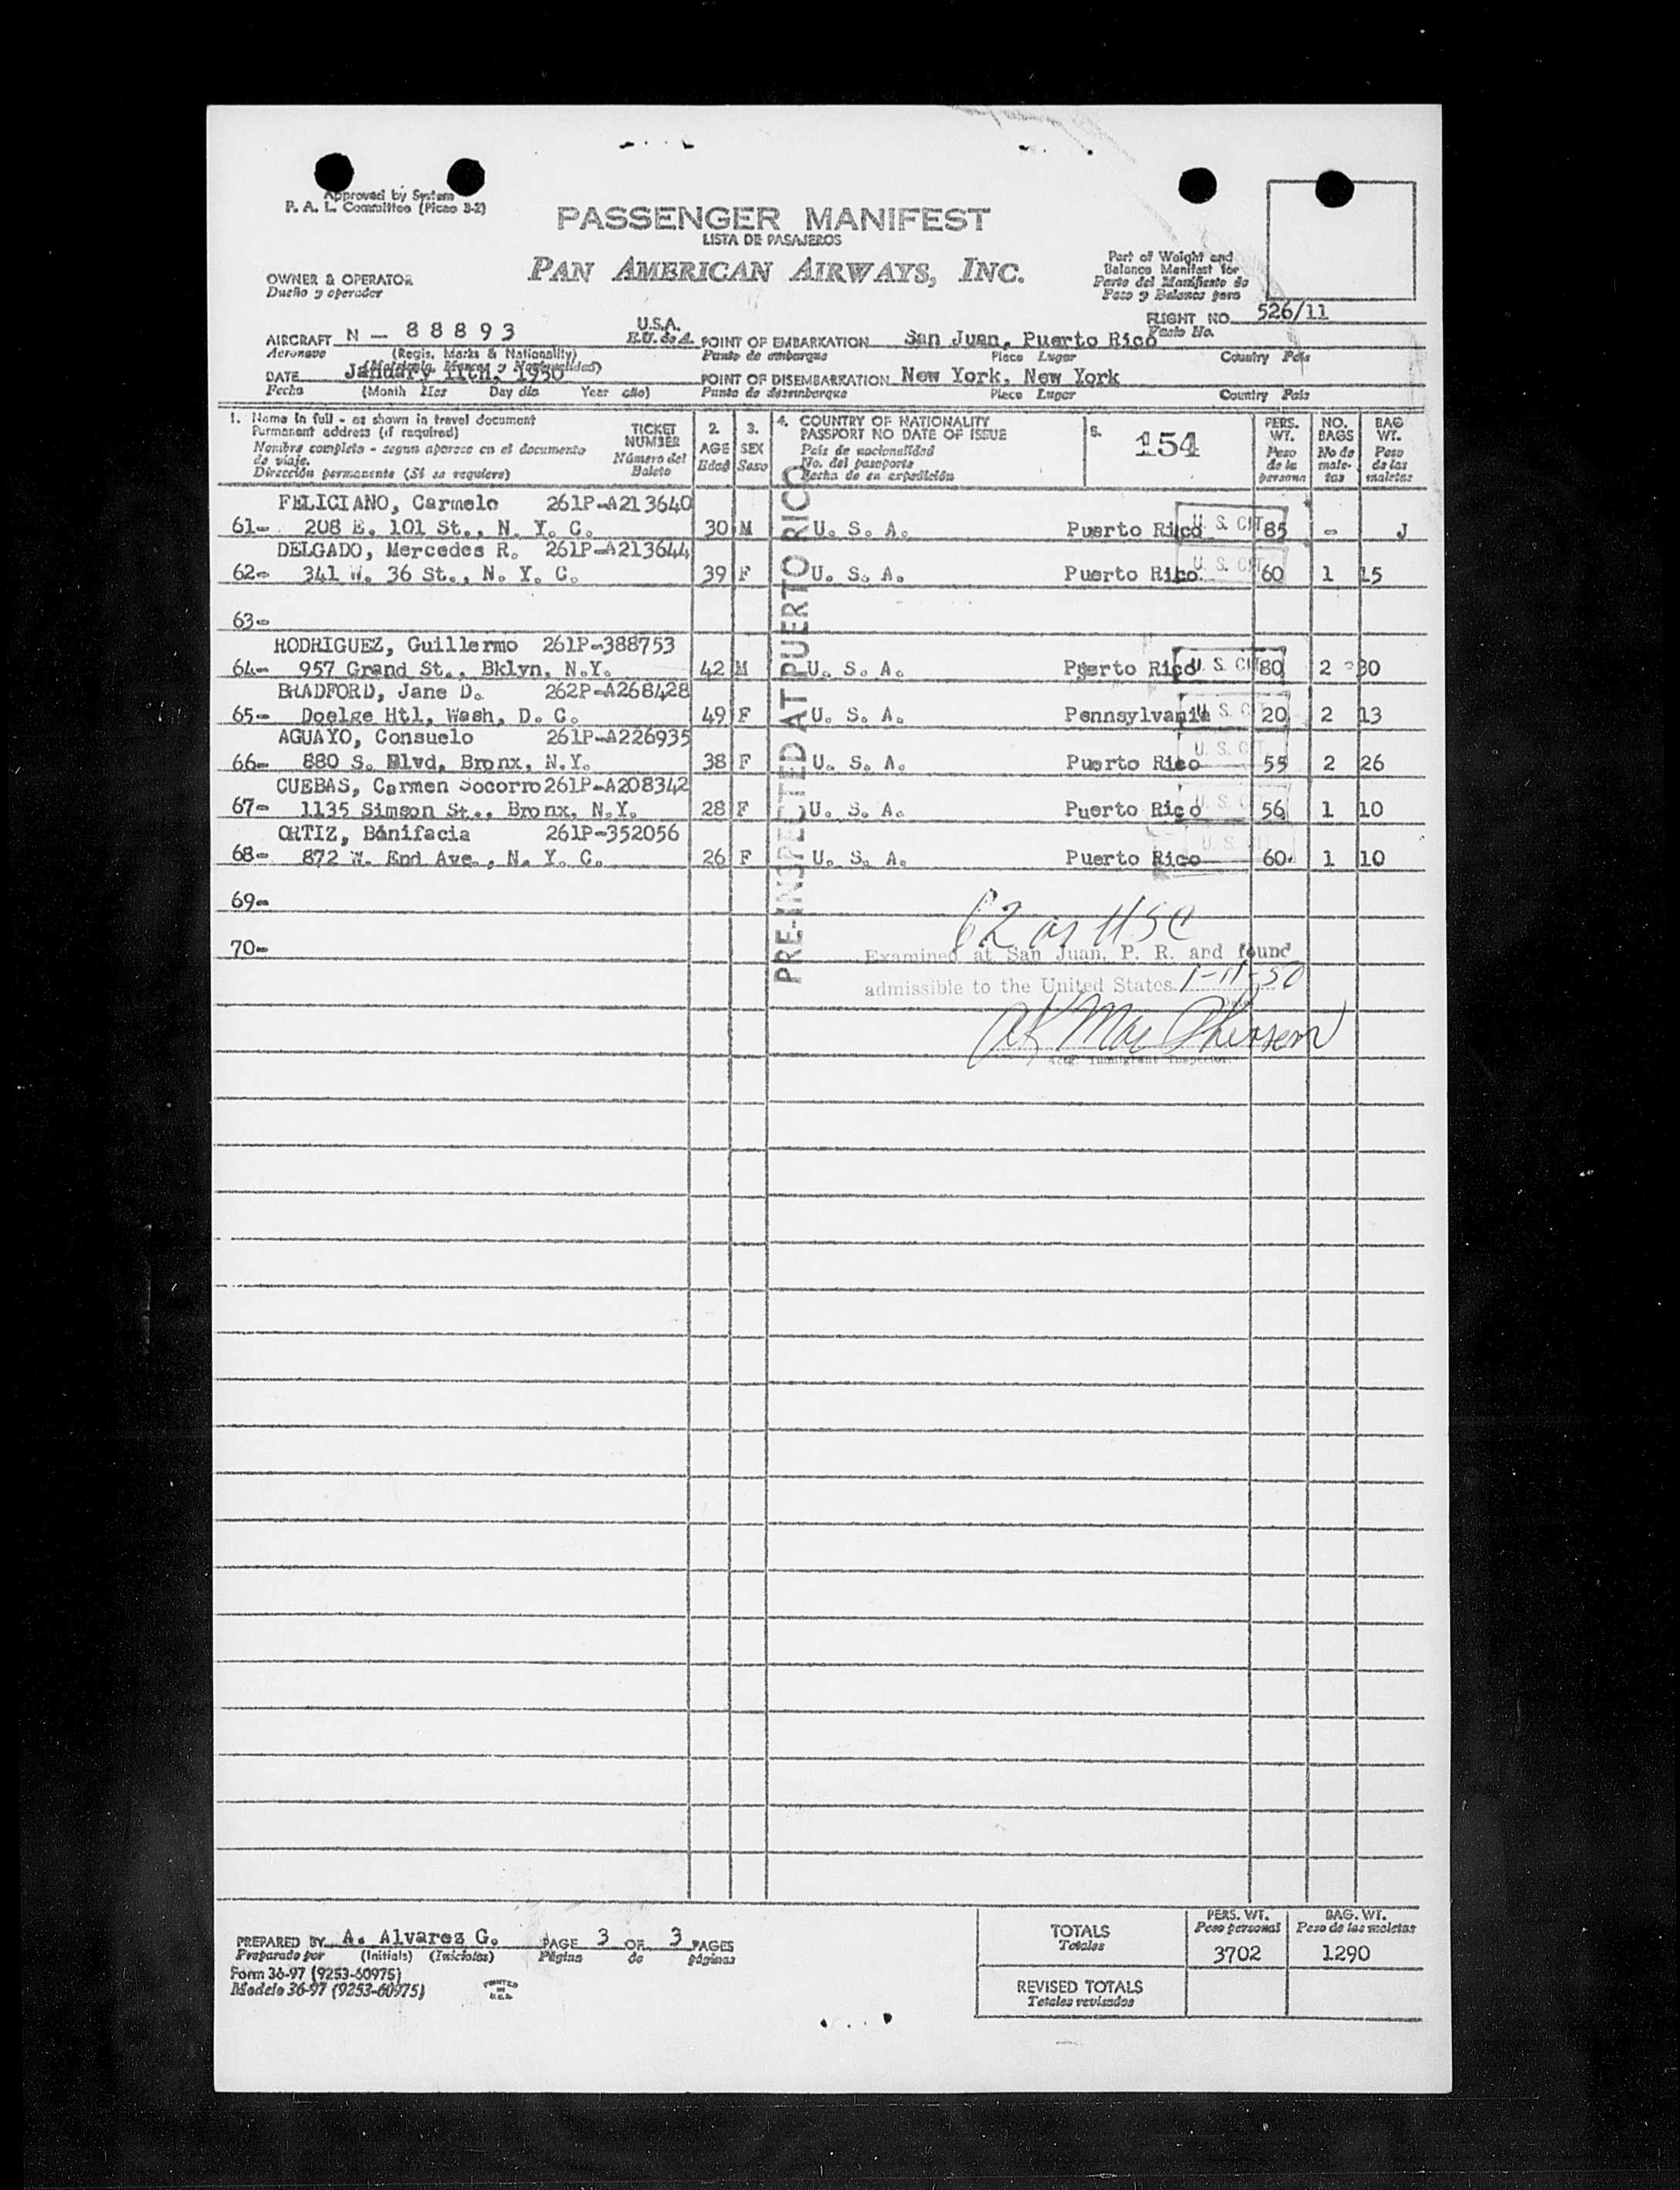 Approved by System
P. A. L. Committee (Picao 3-2)
PASSENGER MANIFEST
LISTA DE PASAJEROS
PAN AMERICAN AIRWAYS, INC.
OWNER & OPERATOR
Dueño y operador
Part of Weight and
Balance Manifest for
Parte del Manifiesto de
Peso y Balance para
FLIGHT NO. 526/11
Vuelo No.
AIRCRAFT N - 88893 U.S.A.
E.U. de A.
Aeronave (Regis. Marks & Nationality)
(Matricula, Marcas y Nacionalidad)
POINT OF EMBARKATION San Juan, Puerto Rico
Punto de embarque Place Lugar Country Pais
DATE January 11th, 1950
Fecha (Month Mes Day dia Year año)
POINT OF DISEMBARKATION New York, New York
Punto de desembarque Place Lugar Country Pais
1. Name in full - as shown in travel document
Permanent address (if required)
Nombre completo - segun aparece en el documento
de viaje.
Dirección permanente (Si se requiere)
TICKET
NUMBER
Número del
Boleto
2.
AGE
Edad
3.
SEX
Sexo
4. COUNTRY OF NATIONALITY
PASSPORT NO DATE OF ISSUE
Pais de nacionalidad
No. del pasaporte
Fecha de su expedición
5. 154
PERS.
WT.
Peso
de la
persona
NO.
BAGS
No de
male-
tas
BAG
WT.
Peso
de las
maletas
PRE-INSPECTED AT PUERTO RICO
FELICIANO, Carmelo 261P-A213640
61- 208 E. 101 St., N. Y. C. 30 M U. S. A. Puerto Rico U. S. CIT 85 - J
DELGADO, Mercedes R. 261P-A213644
62- 341 W. 36 St., N. Y. C. 39 F U. S. A. Puerto Rico U. S. CIT 60 1 15
63-
RODRIGUEZ, Guillermo 261P-388753
64- 957 Grand St., Bklyn, N.Y. 42 M U. S. A. Puerto Rico U. S. CIT 80 2 30
BRADFORD, Jane D. 262P-A268428
65- Doelge Htl, Wash, D. C. 49 F U. S. A. Pennsylvania U. S. C 20 2 13
AGUAYO, Consuelo 261P-A226935
66- 880 S. Blvd, Bronx, N.Y. 38 F U. S. A. Puerto Rico U. S. CIT 55 2 26
CUEBAS, Carmen Socorro 261P-A208342
67- 1135 Simson St., Bronx, N.Y. 28 F U. S. A. Puerto Rico U. S. C 56 1 10
ORTIZ, Bonifacia 261P-352056
68- 872 W. End Ave., N. Y. C. 26 F U. S. A. Puerto Rico U. S. 60 1 10
69-
62 as USC
70-
Examined at San Juan, P. R. and found
admissible to the United States 1-11-50
Date
Actg. Immigrant Inspector.
PREPARED BY A. Alvarez G. PAGE 3 OF 3 PAGES
Preparado por (Initials) (Iniciales) Página de páginas
Form 36-97 (9253-60975)
Modelo 36-97 (9253-60975)
PRINTED
IN
U.S.A.
TOTALS
Totales
PERS. WT.
Peso personal
3702
BAG. WT.
Peso de las maletas
1290
REVISED TOTALS
Totales revisados